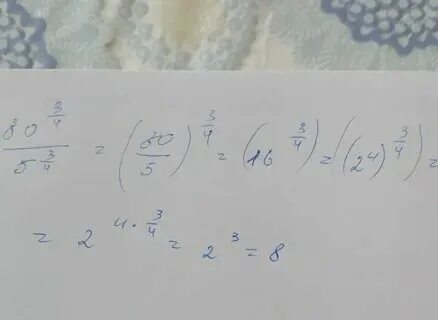 80^(3/4) / 5^(3/4) = (80/5)^(3/4) = (16^(3/4)) = ((2^4)^(3/4)) =
= 2^(4·3/4) = 2^3 = 8